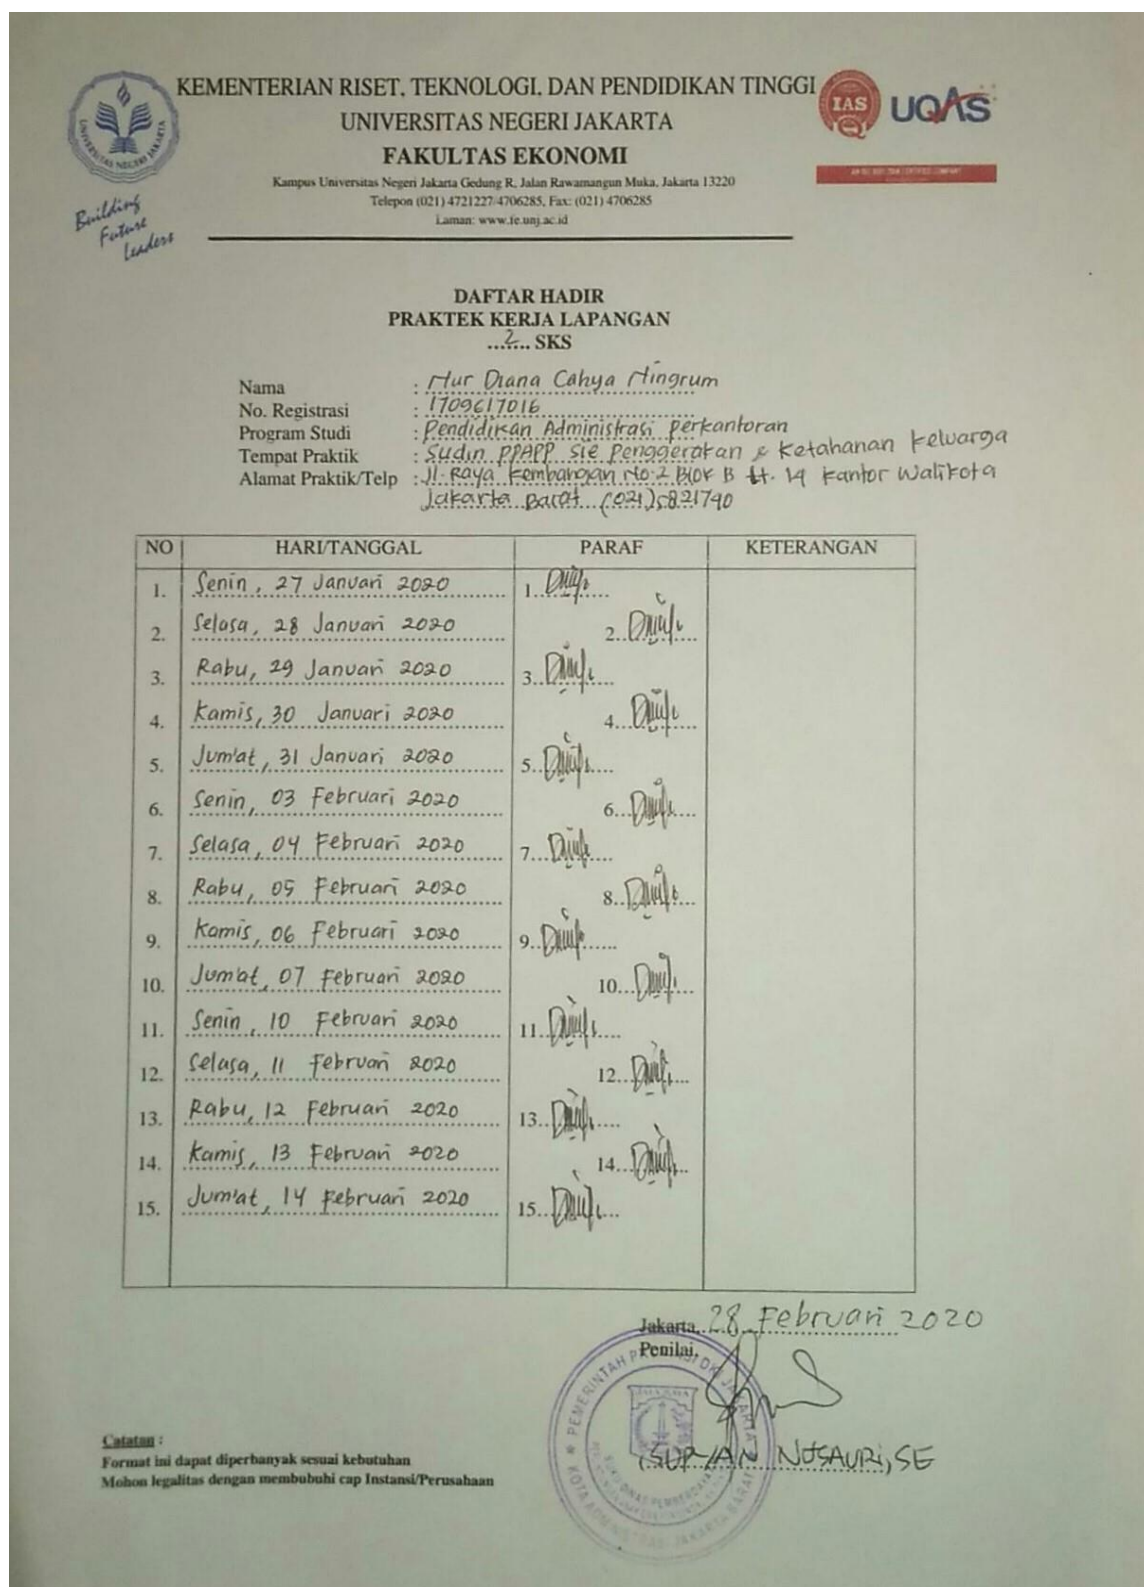 KEMENTERIAN RISET, TEKNOLOGI, DAN PENDIDIKAN TINGGI
UNIVERSITAS NEGERI JAKARTA
FAKULTAS EKONOMI
Kampus Universitas Negeri Jakarta Gedung R, Jalan Rawamangun Muka, Jakarta 13220
Telepon (021) 4721227/4706285, Fax: (021) 4706285
Laman: www.fe.unj.ac.id
UNIVERSITAS NEGERI JAKARTA
Building
Future
Leaders
IAS
UQAS
DAFTAR HADIR
PRAKTEK KERJA LAPANGAN
...2... SKS
Nama : Nur Diana Cahya Ningrum
No. Registrasi : 1709617016
Program Studi : Pendidikan Administrasi Perkantoran
Tempat Praktik : Sudin PPAPP Sie Penggerakan & Ketahanan Keluarga
Alamat Praktik/Telp : Jl. Raya Kembangan No.2 Blok B Lt. 14 Kantor Walikota
Jakarta Barat (021) 5821740
NO HARI/TANGGAL PARAF KETERANGAN
1. Senin, 27 Januari 2020 1.
2. Selasa, 28 Januari 2020 2.
3. Rabu, 29 Januari 2020 3.
4. Kamis, 30 Januari 2020 4.
5. Jum'at, 31 Januari 2020 5.
6. Senin, 03 Februari 2020 6.
7. Selasa, 04 Februari 2020 7.
8. Rabu, 05 Februari 2020 8.
9. Kamis, 06 Februari 2020 9.
10. Jum'at, 07 Februari 2020 10.
11. Senin, 10 Februari 2020 11.
12. Selasa, 11 Februari 2020 12.
13. Rabu, 12 Februari 2020 13.
14. Kamis, 13 Februari 2020 14.
15. Jum'at, 14 Februari 2020 15.
Jakarta, 28 Februari 2020
Penilai,
PEMERINTAH DKI JAKARTA
KOTA ADMINISTRASI JAKARTA BARAT
Catatan :
Format ini dapat diperbanyak sesuai kebutuhan
Mohon legalitas dengan membubuhi cap Instansi/Perusahaan